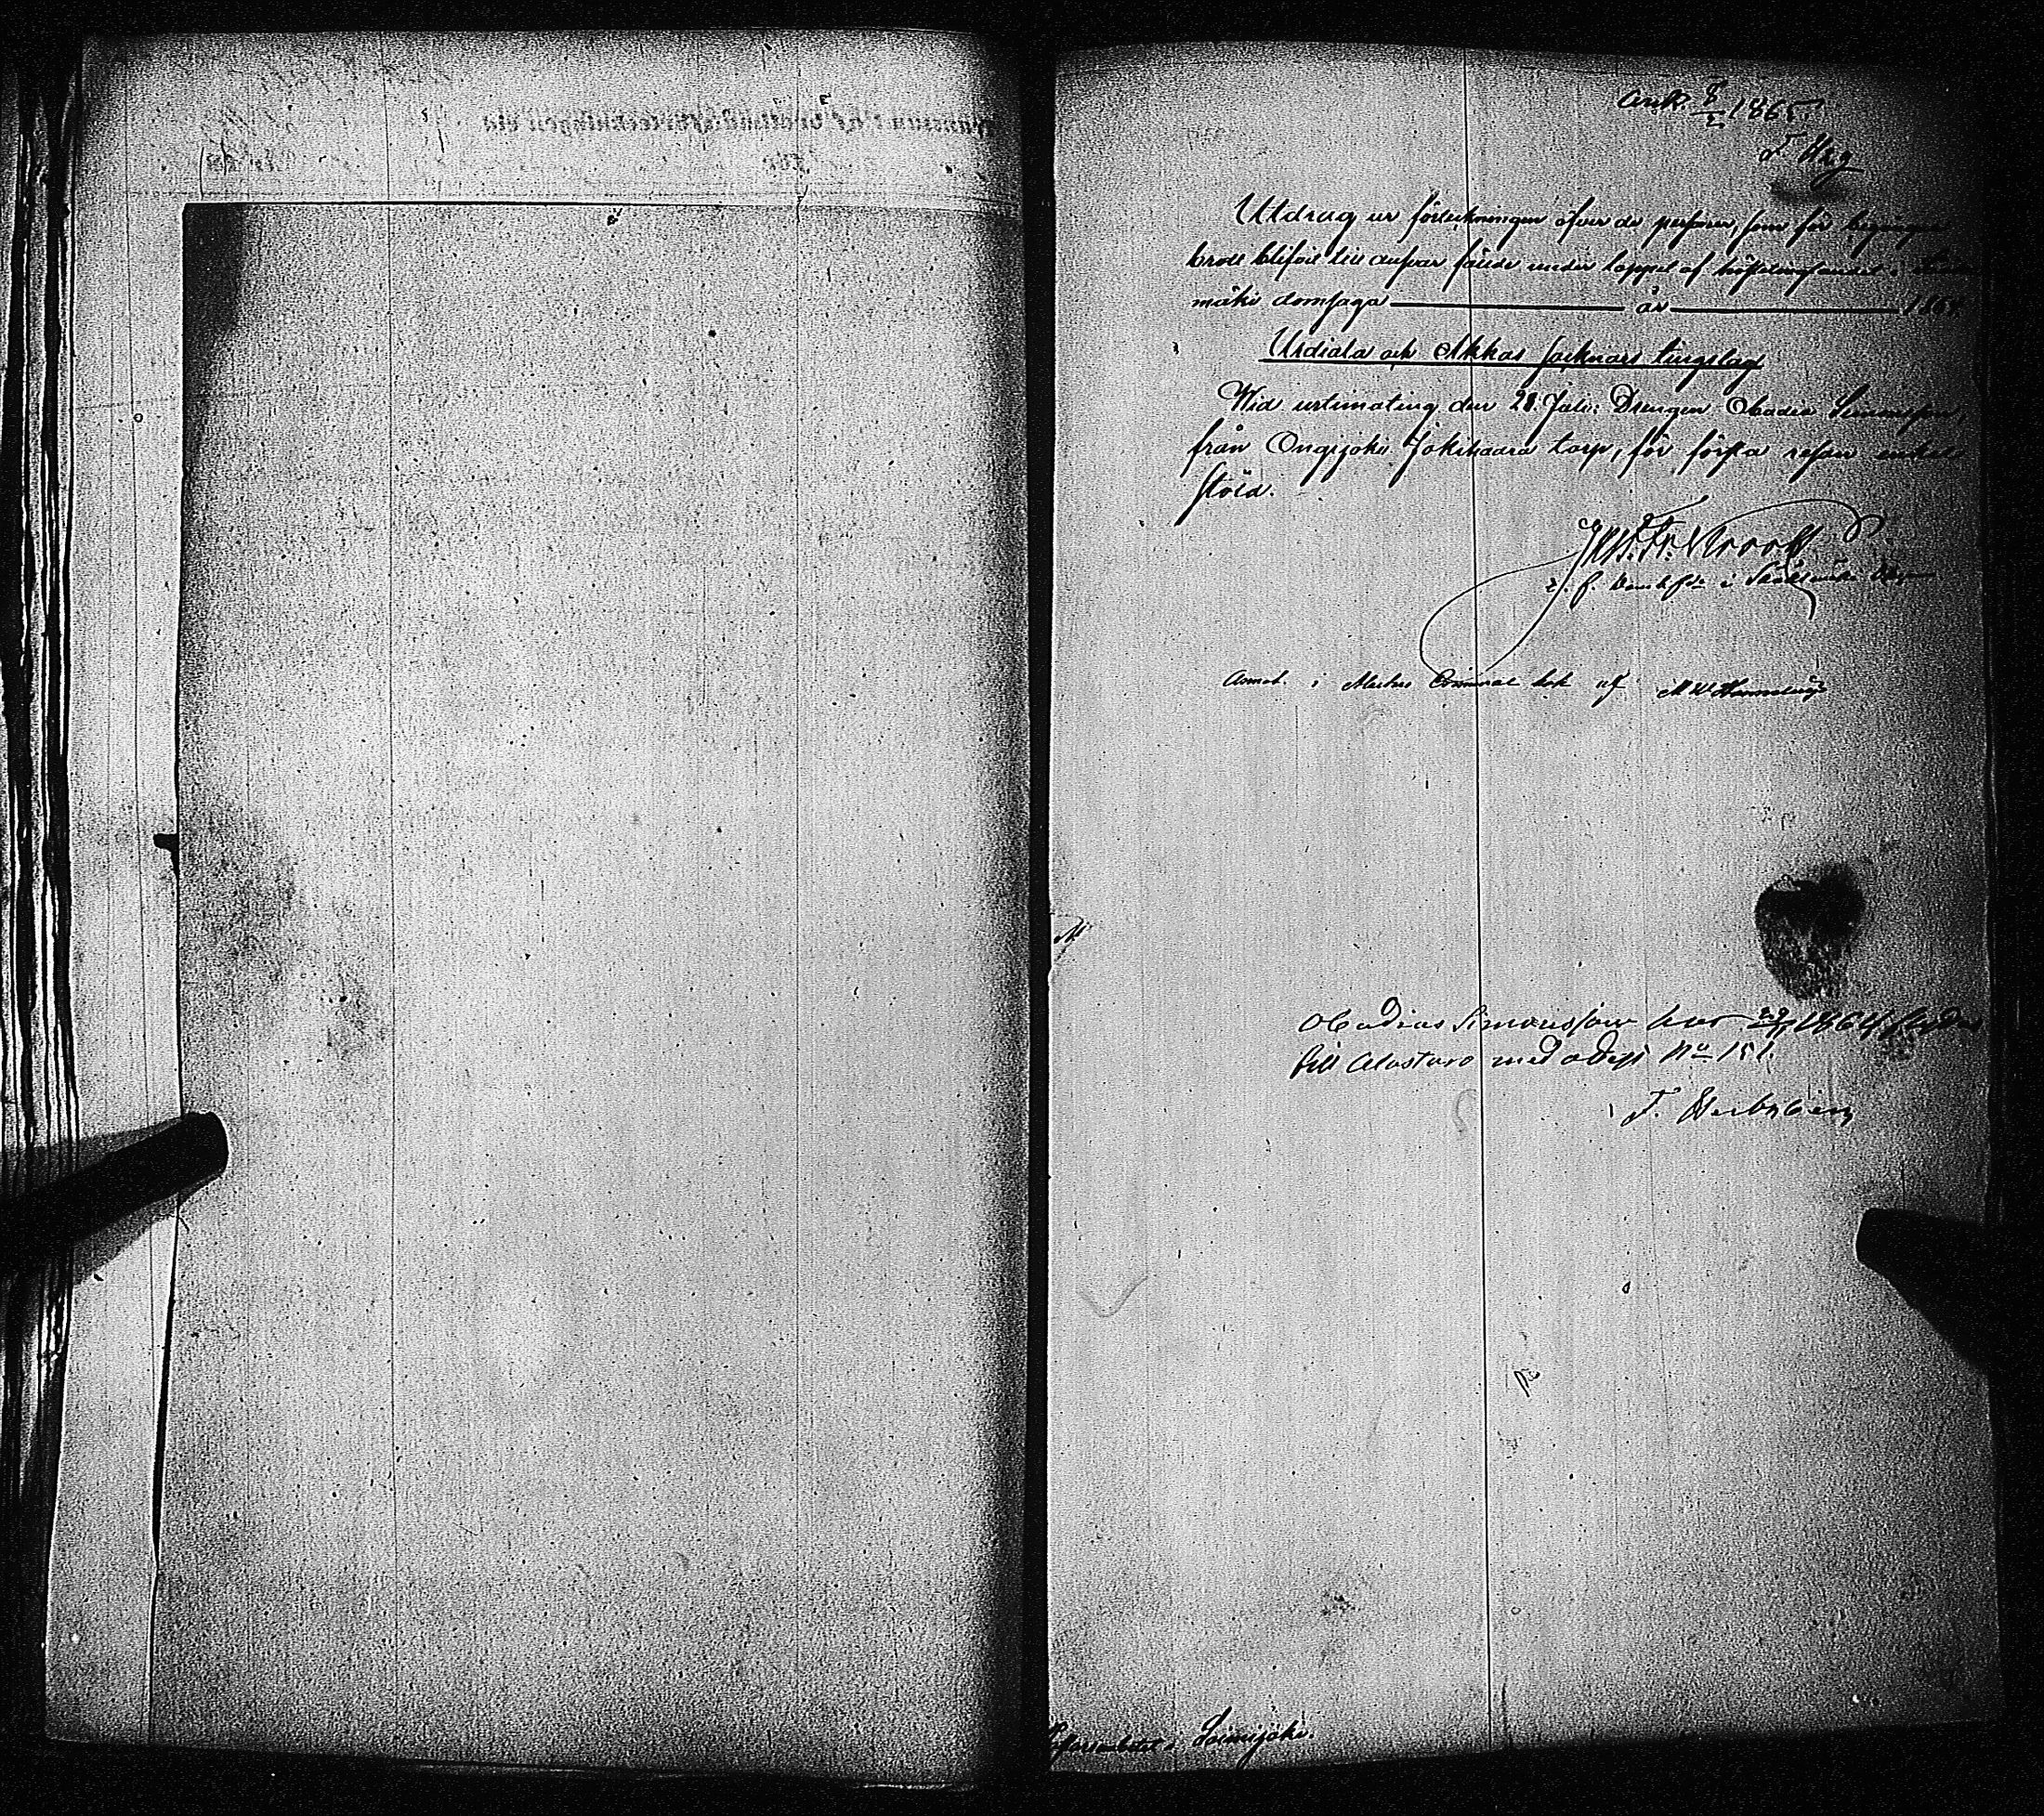 Ank. 8/2 1865.
F. Hbg
Utdrag ur förteckningen öfver de personer, som för begångna
brott blifvit till ansvar fällde under loppet af höstetingsandet i
mäki domsaga år 1864
Urdiala och Akkas socknars tingslag
Wid urtimating den 28 Juli: Drengen Obadia Simonsson,
från Ongijoki Jokihaara torp, för första resan enkel
stöld.
e. f. Domhfde i Sääksmäki
Annot. i Criminal bok af
Obadias Simonsson har 1864 flyttat
till Alastaro med attest No 151.
F.
i Loimijoki.